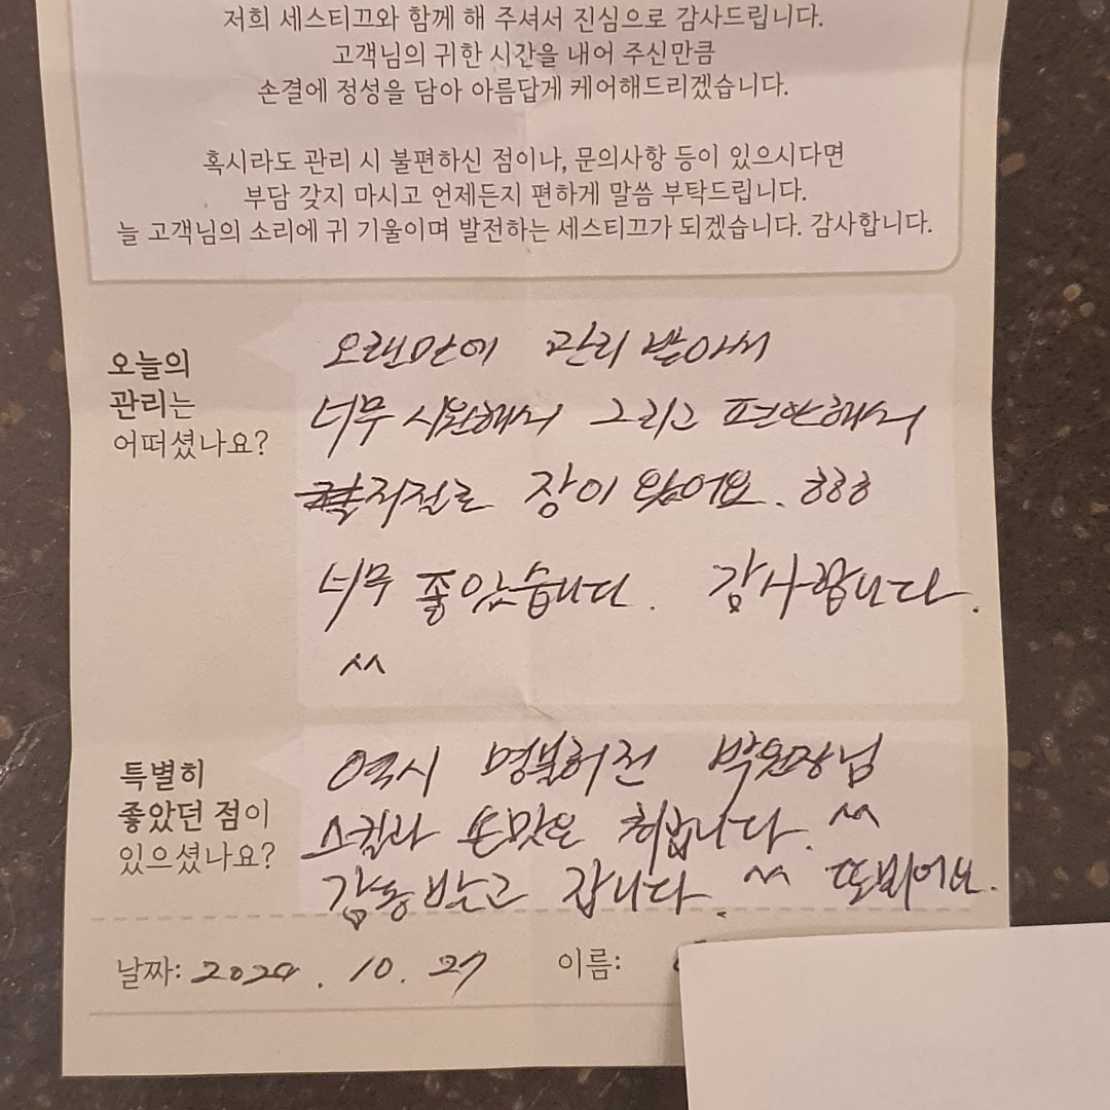 저희 세스티끄와 함께 해 주셔서 진심으로 감사드립니다.
고객님의 귀한 시간을 내어 주신만큼
손결에 정성을 담아 아름답게 케어해드리겠습니다.
혹시라도 관리 시 불편하신 점이나, 문의사항 등이 있으시다면
부담 갖지 마시고 언제든지 편하게 말씀 부탁드립니다.
늘 고객님의 소리에 귀 기울이며 발전하는 세스티끄가 되겠습니다. 감사합니다.
오늘의
관리는
어떠셨나요?
오랜만에 관리 받아서
너무 시원해서 그리고 편안해서
저절로 잠이 왔어요. ㅎㅎㅎ
너무 좋았습니다. 감사합니다.
^^
특별히
좋았던 점이
있으셨나요?
역시 명불허전 박원장님
스킬과 손맛은 최곱니다. ^^
감동받고 갑니다. ^^ 또뵈어요.
날짜: 2024. 10. 27 이름: